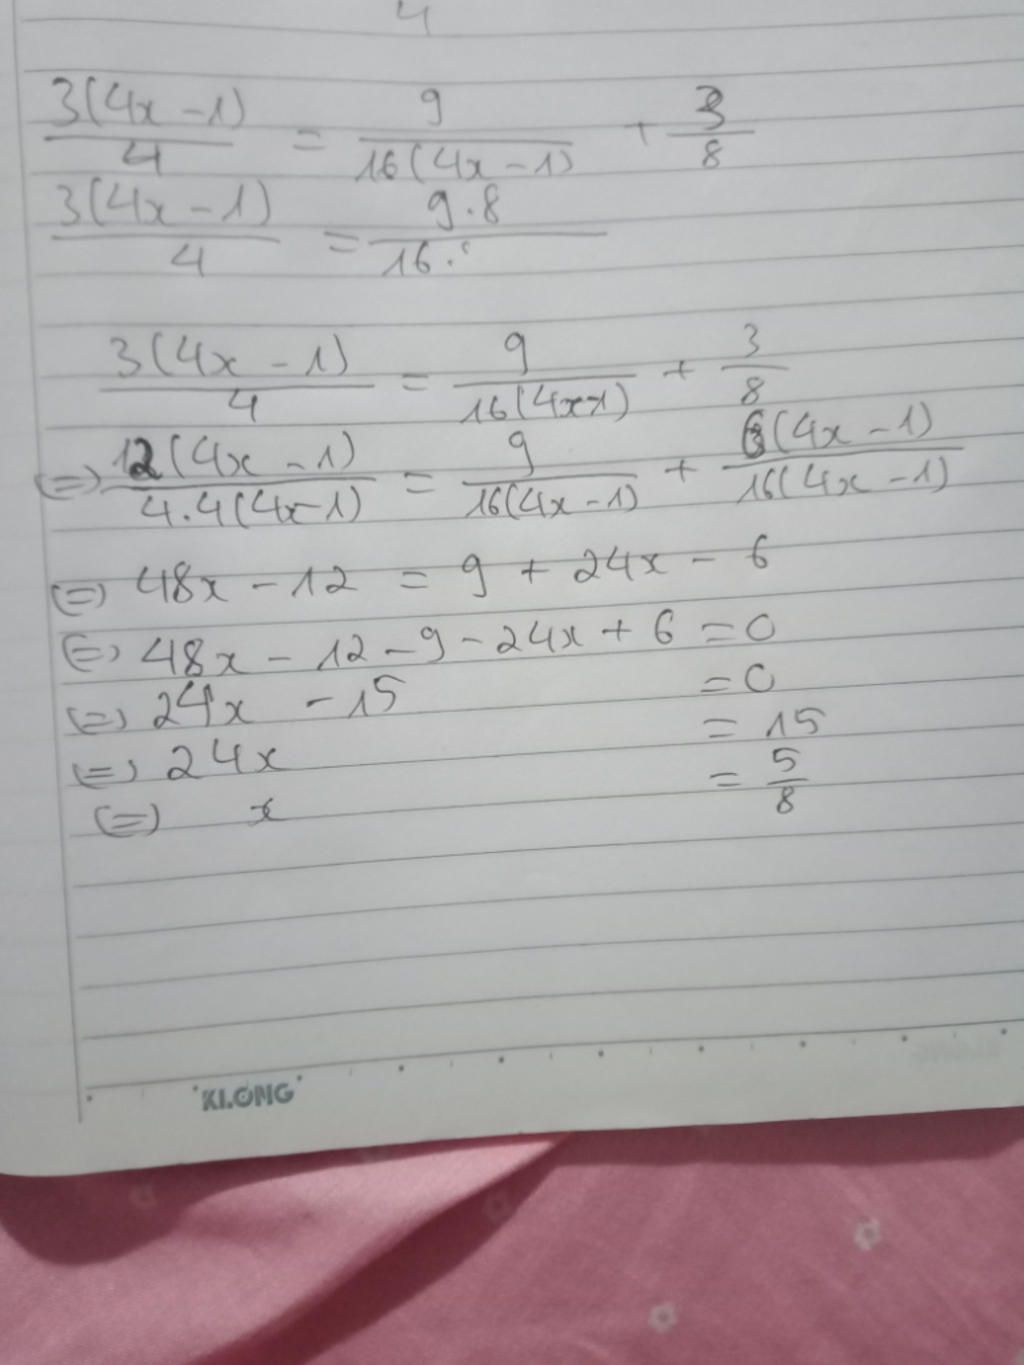 4
3(4x-1)/4 = 9/16(4x-1) + 3/8
3(4x-1)/4 = 9.8/16.
3(4x-1)/4 = 9/16(4x-1) + 3/8
(=) 12(4x-1)/4.4(4x-1) = 9/16(4x-1) + 6(4x-1)/16(4x-1)
(=) 48x - 12 = 9 + 24x - 6
(=) 48x - 12 - 9 - 24x + 6 = 0
(=) 24x - 15 = 0
(=) 24x = 15
(=) x = 5/8
KLONG